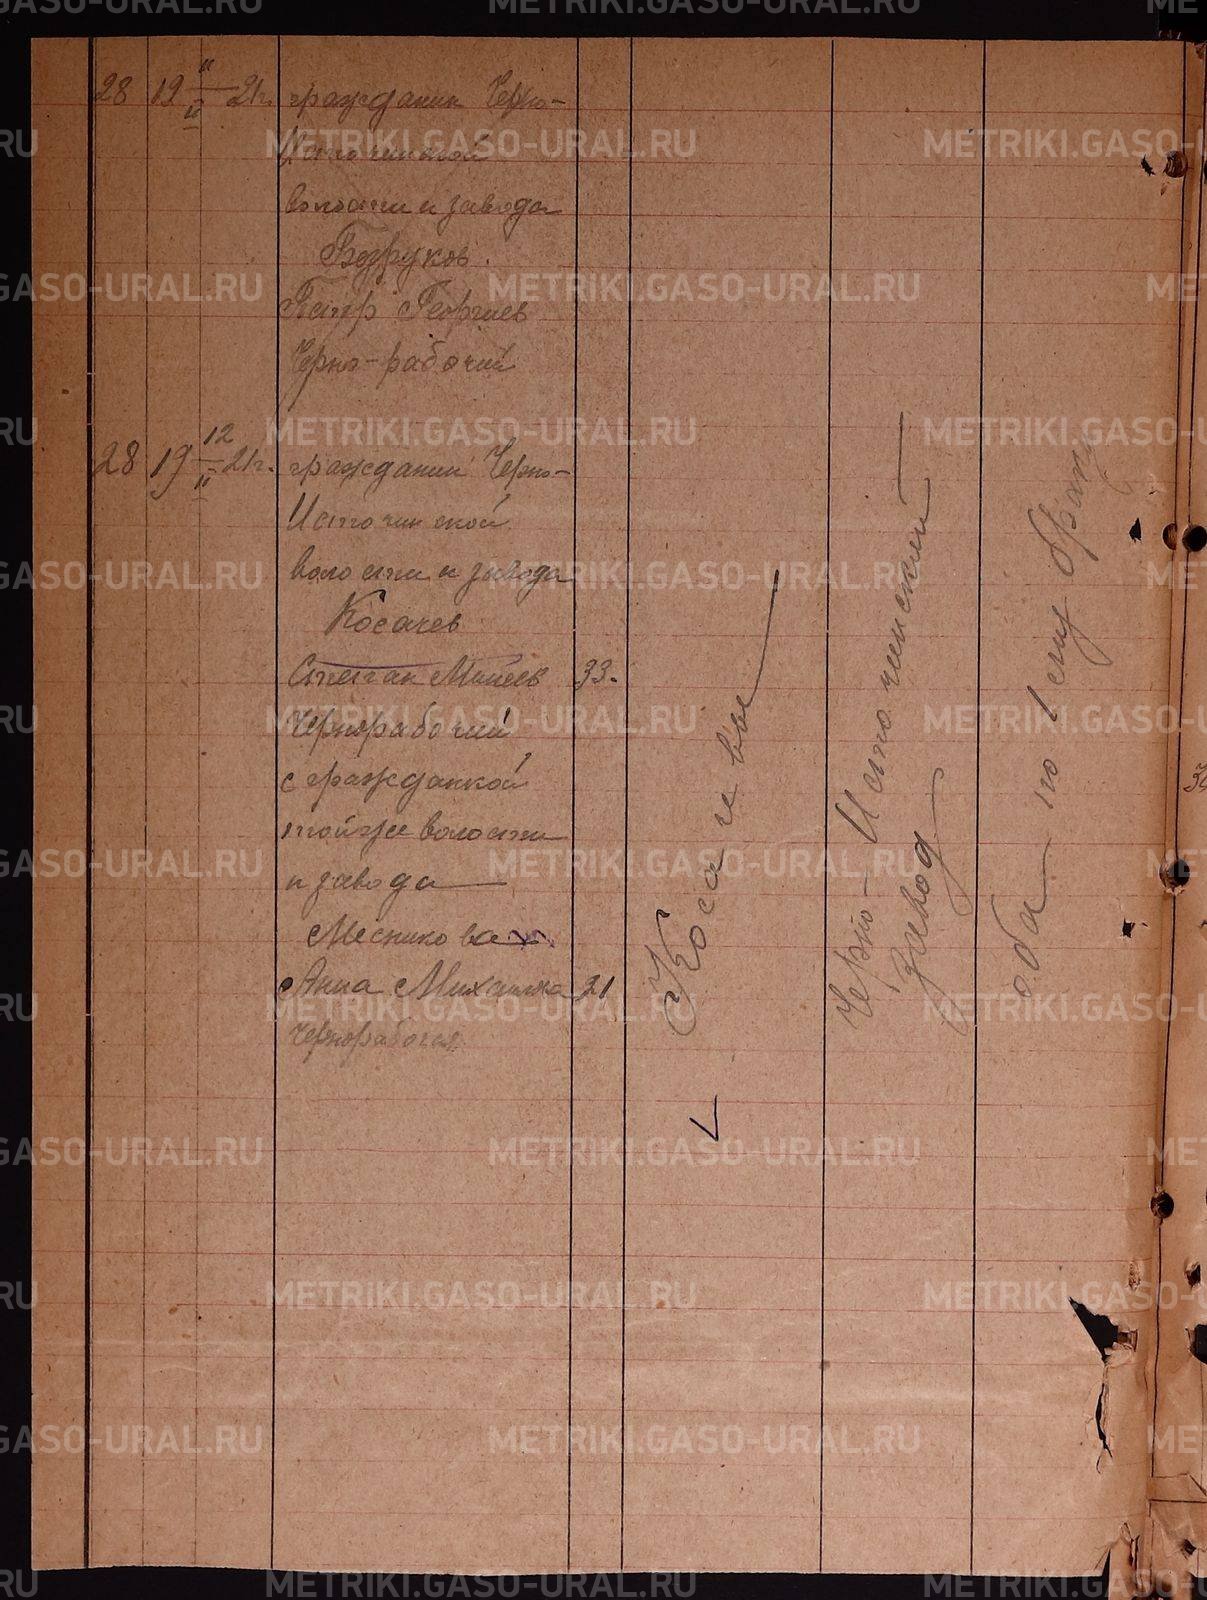 28 19 11/II 21г. гражданин Черно-
Источинской
волости и завода
Безруков.
Петр Георгиев
Черно-рабочий
28 19 12/II 21г. гражданин Черно-
Источинской
волости и завода
Косачев
Степан Моисеев 33.
Чернорабочий
с гражданкой
тойже волости
и завода
Месникова
Анна Михайлова 21
Чернорабочая
Косачевы
Черно-Источинский
завод
оба по 1му браку
METRIKI.GASO-URAL.RU